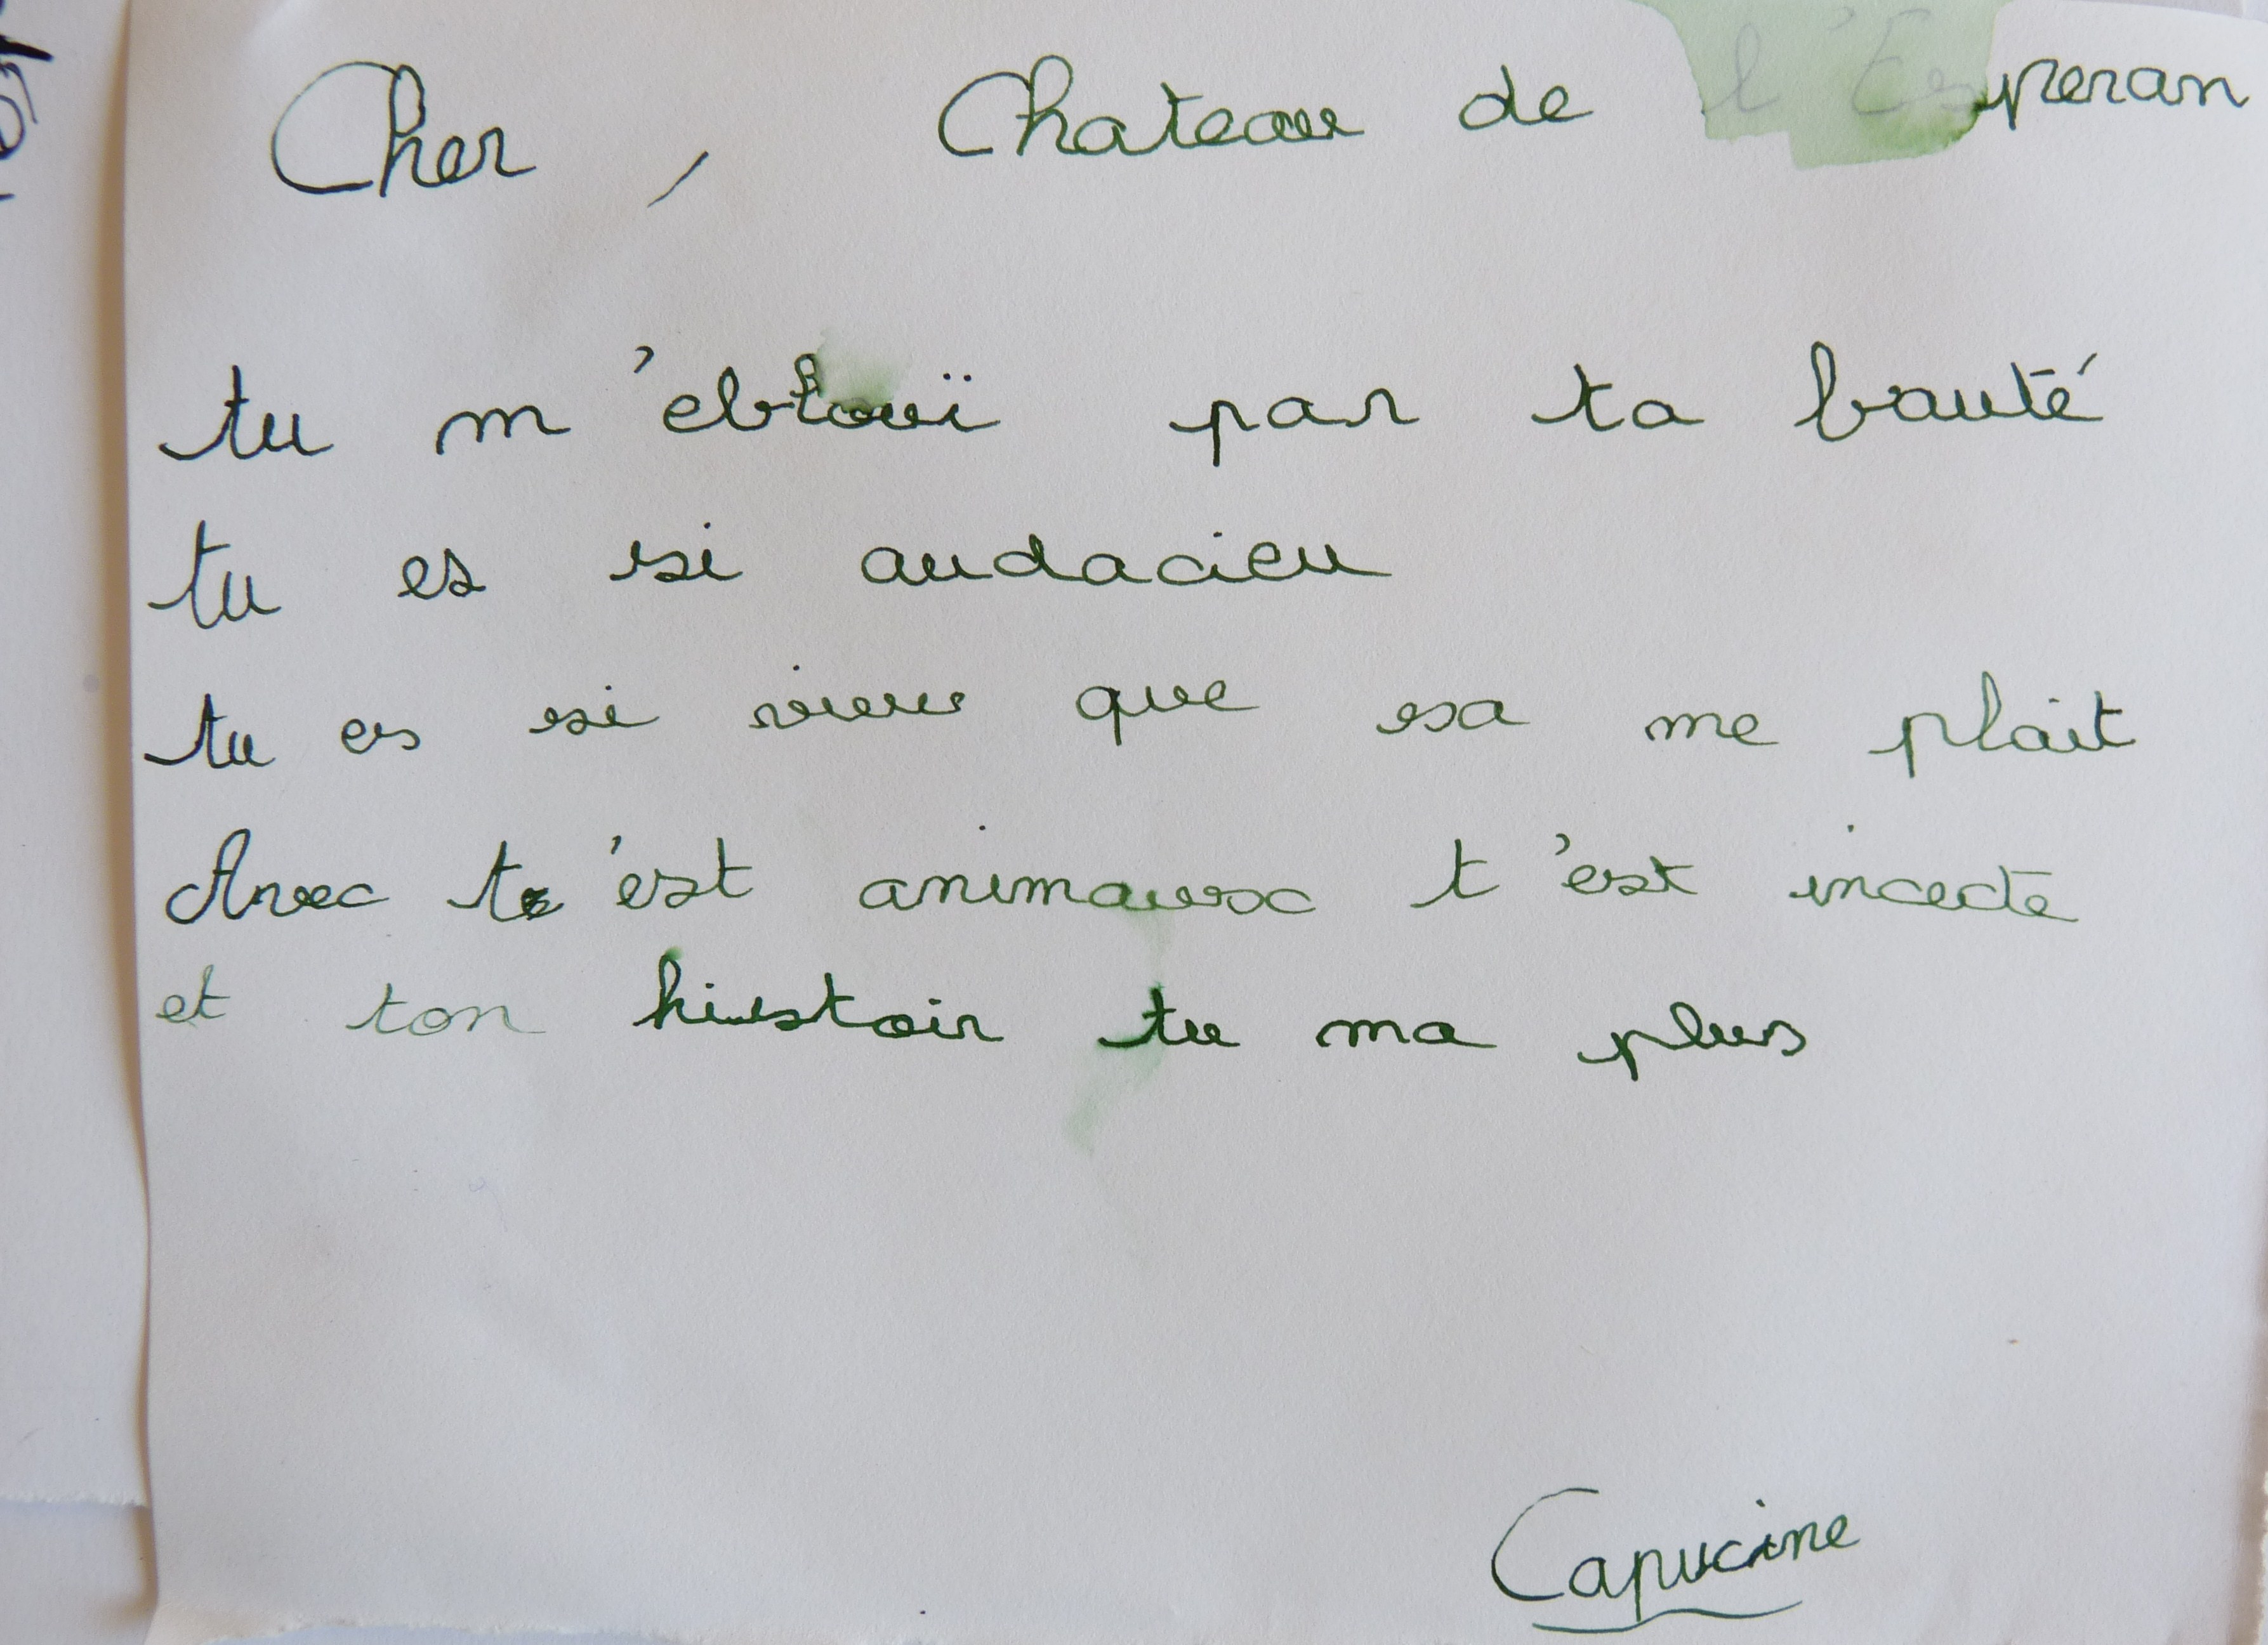 Cher, Chateau de l'Esperan
tu m'eblouï par ta bauté
tu es si audacieu
tu es si vieu que sa me plait
Avec t'est animaux t'est incecte
et ton histoir tu ma plus
Capucine